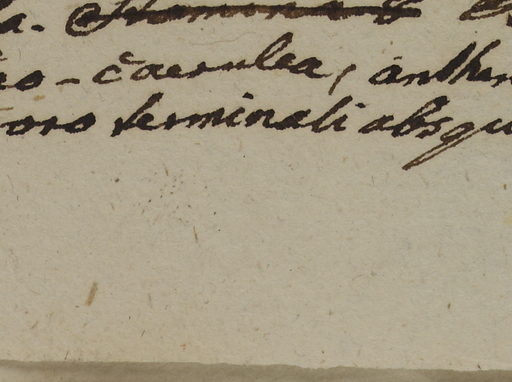 a. Stamina 8
eo-caerulea, anther
oro terminali absqu